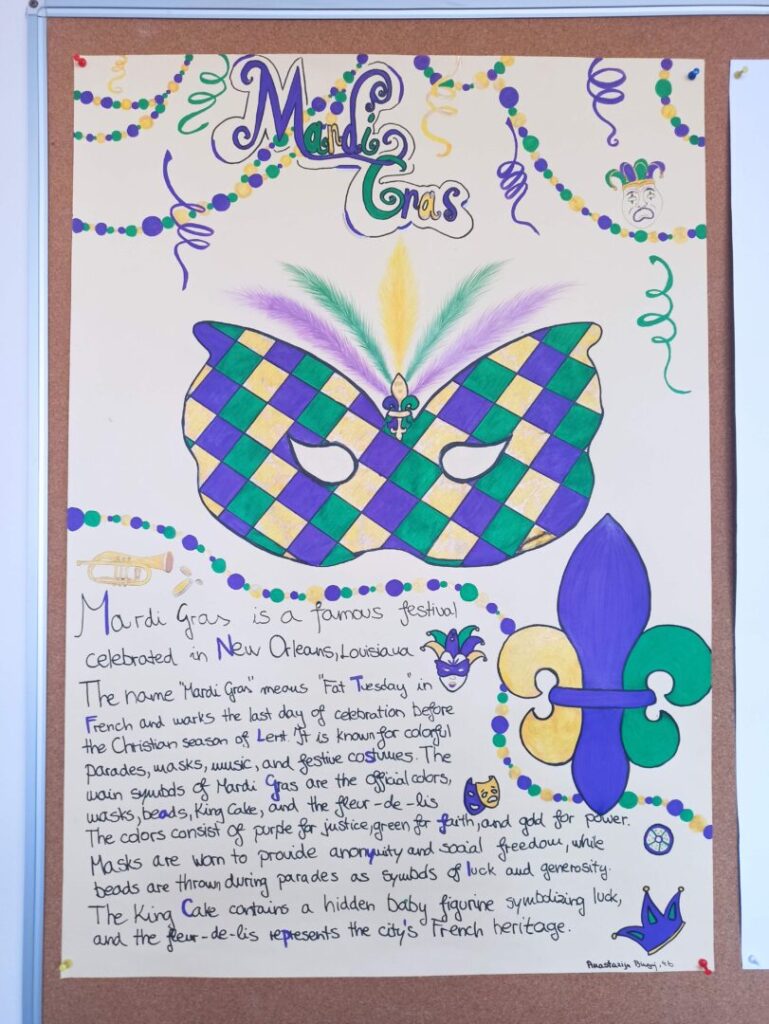 Mardi
Gras
Mardi Gras is a famous festival
celebrated in New Orleans, Louisiana
The name "Mardi Gras" means "Fat Tuesday" in
French and marks the last day of celebration before
the Christian season of Lent. It is known for colorful
parades, masks, music, and festive costumes. The
main symbols of Mardi Gras are the official colors,
masks, beads, King Cake, and the fleur-de-lis
The colors consist of purple for justice, green for faith, and gold for power.
Masks are worn to provide anonymity and social freedom, while
beads are thrown during parades as symbols of luck and generosity.
The King Cake contains a hidden baby figurine symbolizing luck,
and the fleur-de-lis represents the city's French heritage.
Anastazija